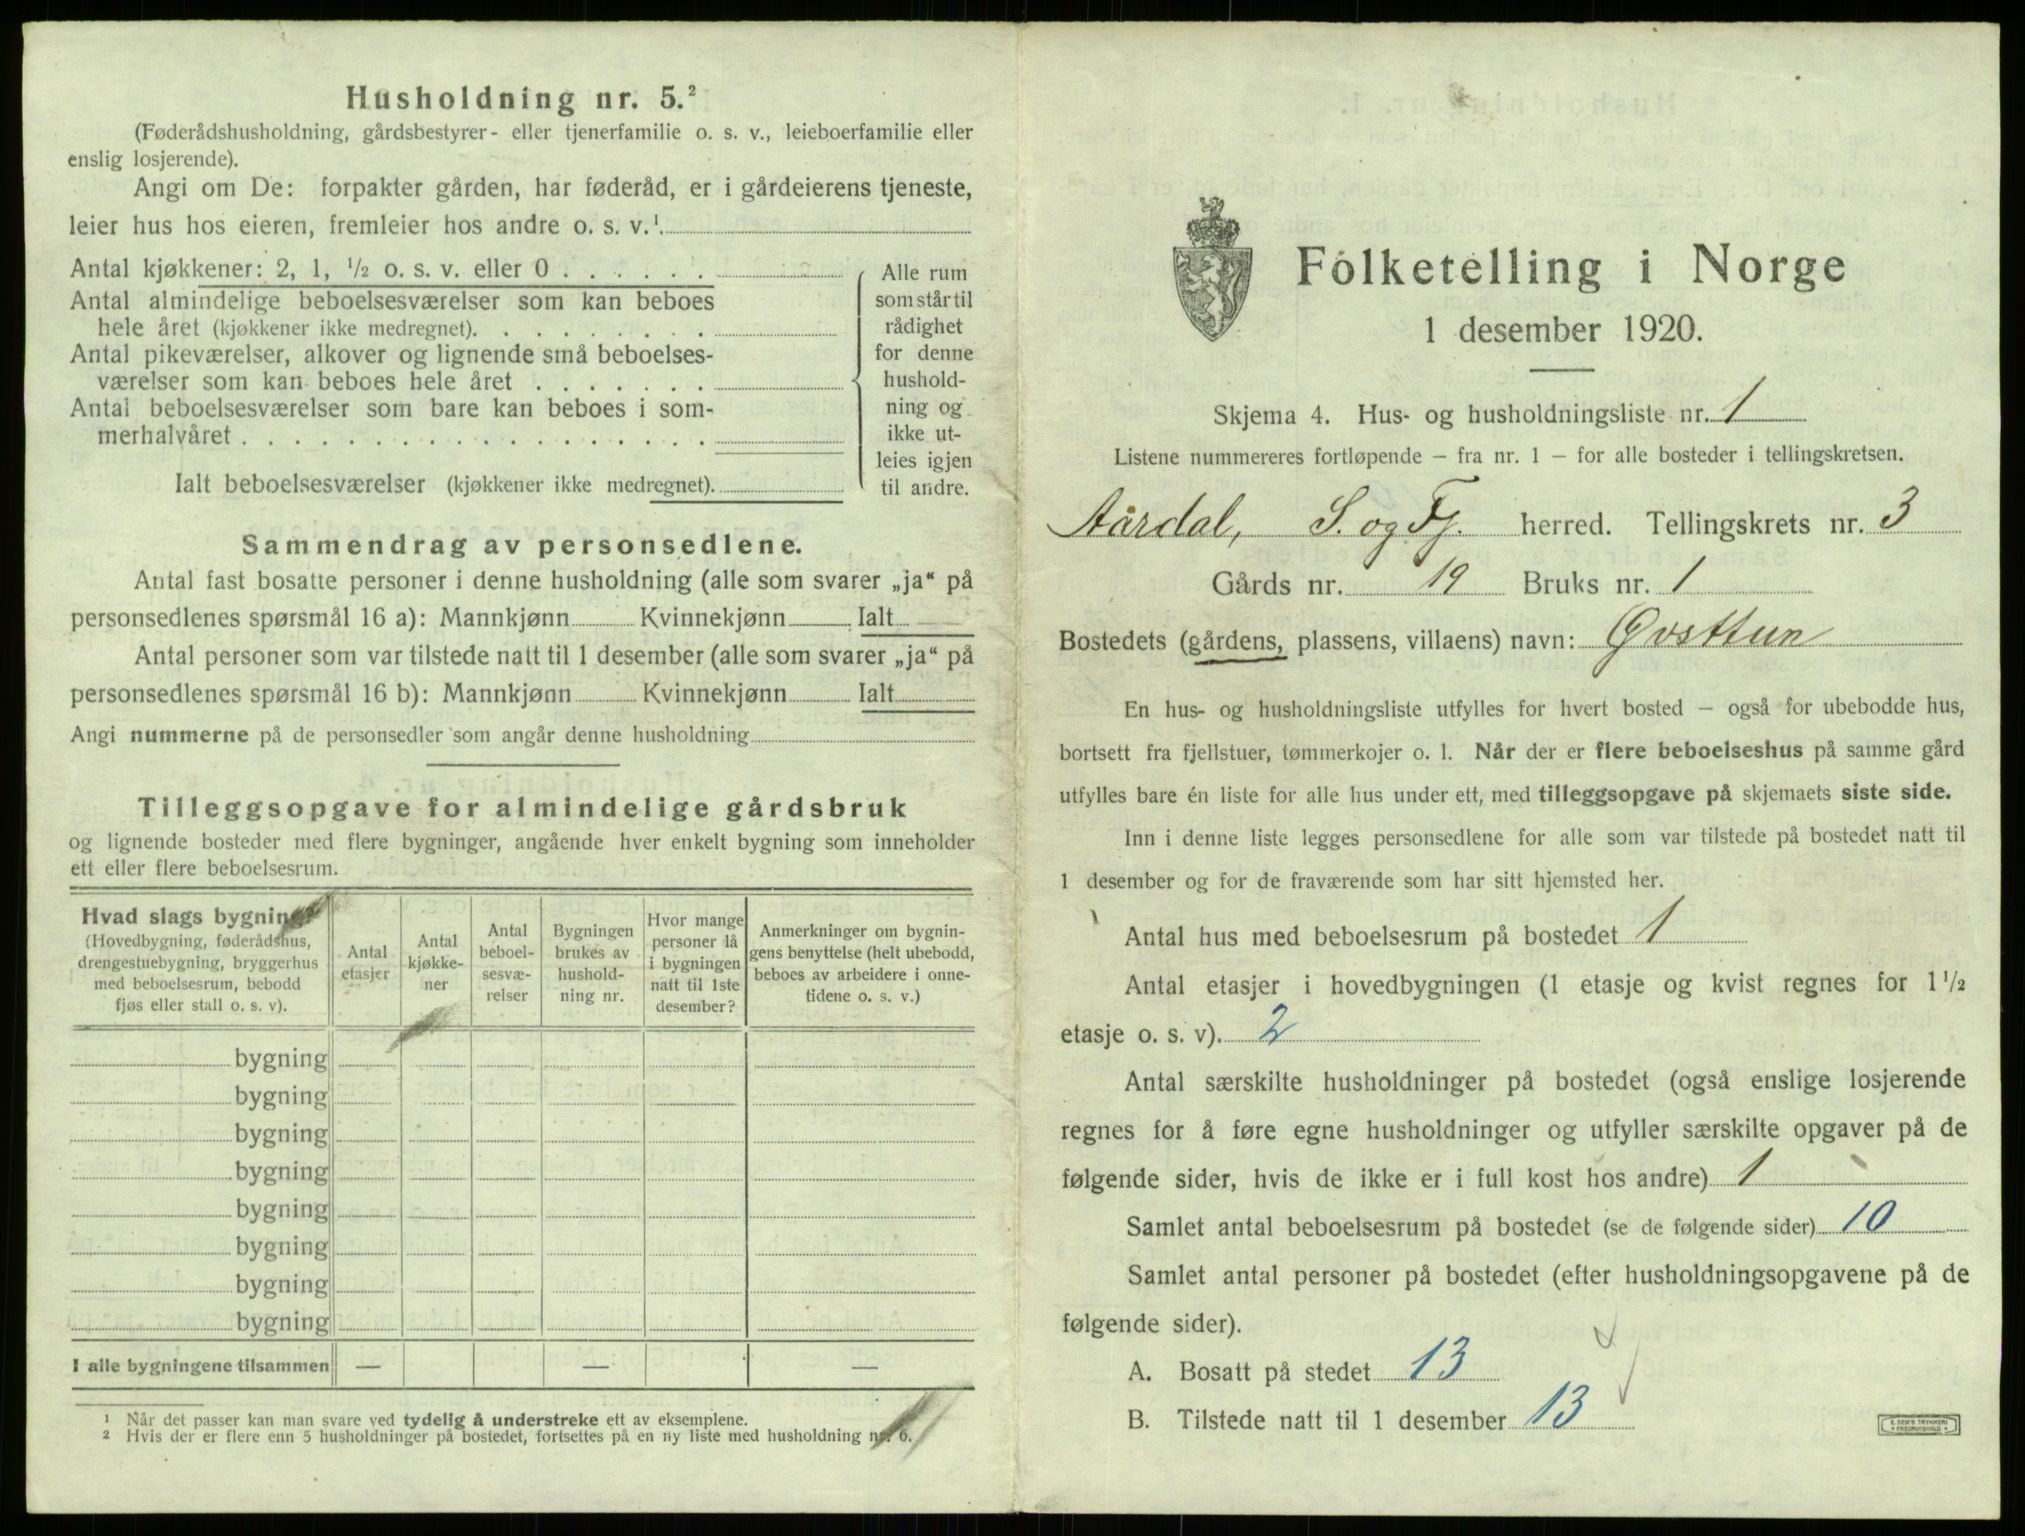 Husholdning nr. 5.²
(Føderådshusholdning, gårdsbestyrer- eller tjenerfamilie o. s. v., leieboerfamilie eller
enslig losjerende).
Angi om De: forpakter gården, har føderåd, er i gårdeierens tjeneste,
leier hus hos eieren, fremleier hos andre o. s. v.¹
Antal kjøkkener: 2, 1, ½ o. s. v. eller 0 . . . . . .
Antal almindelige beboelsesværelser som kan beboes
hele året (kjøkkener ikke medregnet). . . . . . . . .
Antal pikeværelser, alkover og lignende små beboelses-
værelser som kan beboes hele året . . . . . . .
Antal beboelsesværelser som bare kan beboes i som-
merhalvåret . . . . . . . . . . . . . . . . . .
Ialt beboelsesværelser (kjøkkener ikke medregnet).
Alle rum
som står til
rådighet
for denne
hushold-
ning og
ikke ut-
leies igjen
til andre.
Sammendrag av personsedlene.
Antal fast bosatte personer i denne husholdning (alle som svarer „ja“ på
personsedlenes spørsmål 16 a): Mannkjønn Kvinnekjønn Ialt
Antal personer som var tilstede natt til 1 desember (alle som svarer „ja“ på
personsedlenes spørsmål 16 b): Mannkjønn Kvinnekjønn Ialt
Angi nummerne på de personsedler som angår denne husholdning
Tilleggsopgave for almindelige gårdsbruk
og lignende bosteder med flere bygninger, angående hver enkelt bygning som inneholder
ett eller flere beboelsesrum.
Hvad slags bygning?
(Hovedbygning, føderådshus,
drengestuebygning, bryggerhus
med beboelsesrum, bebodd
fjøs eller stall o. s. v).
Antal
etasjer
Antal
kjøkke-
ner
Antal
beboel-
sesvæ-
relser
Bygningen
brukes av
hushold-
ning nr.
Hvor mange
personer lå
i bygningen
natt til 1ste
desember?
Anmerkninger om bygnin-
gens benyttelse (helt ubebodd,
beboes av arbeidere i onne-
tidene o. s. v.)
bygning
bygning
bygning
bygning
bygning
bygning
bygning
bygning
I alle bygningene tilsammen — — —
¹ Når det passer kan man svare ved tydelig å understreke ett av eksemplene.
² Hvis der er flere enn 5 husholdninger på bostedet, fortsettes på en ny liste med husholdning nr. 6.
Folketelling i Norge
1 desember 1920.
Skjema 4. Hus- og husholdningsliste nr. 1
Listene nummereres fortløpende – fra nr. 1 – for alle bosteder i tellingskretsen.
Aardal, S. og Fj. herred. Tellingskrets nr. 3
Gårds nr. 19 Bruks nr. 1
Bostedets (gårdens, plassens, villaens) navn: Øvsttun
En hus- og husholdningsliste utfylles for hvert bosted – også for ubebodde hus,
bortsett fra fjellstuer, tømmerkojer o. l. Når der er flere beboelseshus på samme gård
utfylles bare én liste for alle hus under ett, med tilleggsopgave på skjemaets siste side.
Inn i denne liste legges personsedlene for alle som var tilstede på bostedet natt til
1 desember og for de fraværende som har sitt hjemsted her.
Antal hus med beboelsesrum på bostedet 1
Antal etasjer i hovedbygningen (1 etasje og kvist regnes for 1½
etasje o. s. v). 2
Antal særskilte husholdninger på bostedet (også enslige losjerende
regnes for å føre egne husholdninger og utfyller særskilte opgaver på de
følgende sider, hvis de ikke er i full kost hos andre) 1
Samlet antal beboelsesrum på bostedet (se de følgende sider) 10
Samlet antal personer på bostedet (efter husholdningsopgavene på de
følgende sider).
A. Bosatt på stedet 13
B. Tilstede natt til 1 desember 13
E. SEM'S TRYKKERI
FREDRIKSHALD